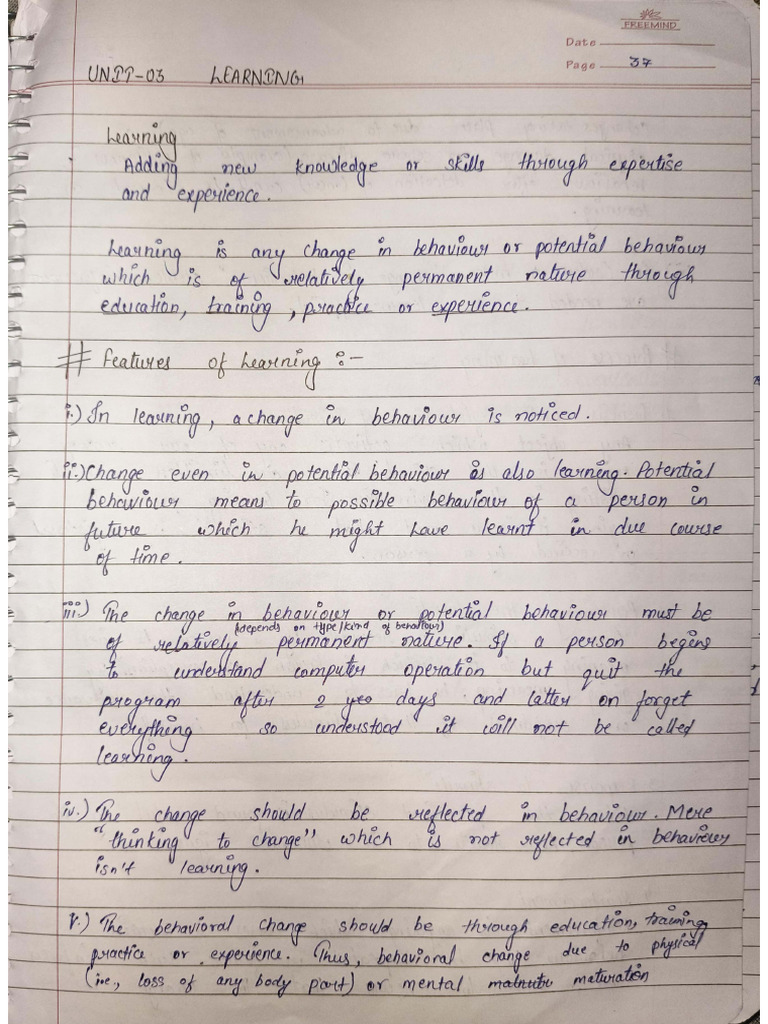 FREEMIND
Date
Page 37
UNIT-03 LEARNING
Learning
Adding new knowledge or skills through expertise
and experience.
Learning is any change in behaviour or potential behaviour
which is of relatively permanent nature through
education, training, practice or experience.
# Features of Learning :-
i.) In learning, a change in behaviour is noticed.
ii.) Change even in potential behaviour is also learning. Potential
behaviour means to possible behaviour of a person in
future which he might have learnt in due course
of time.
iii.) The change in behaviour or potential behaviour must be
(depends on type/kind of behaviour)
of relatively permanent nature. If a person begins
to understand computer operation but quit the
program after 2 yeo days and latter on forget
everything so understood it will not be called
learning.
iv.) The change should be reflected in behaviour. Mere
"thinking to change" which is not reflected in behaviour
isn't learning.
v.) The behavioral change should be through education, training,
practice or experience. Thus, behavioral change due to physical
(i.e., loss of any body part) or mental maturation